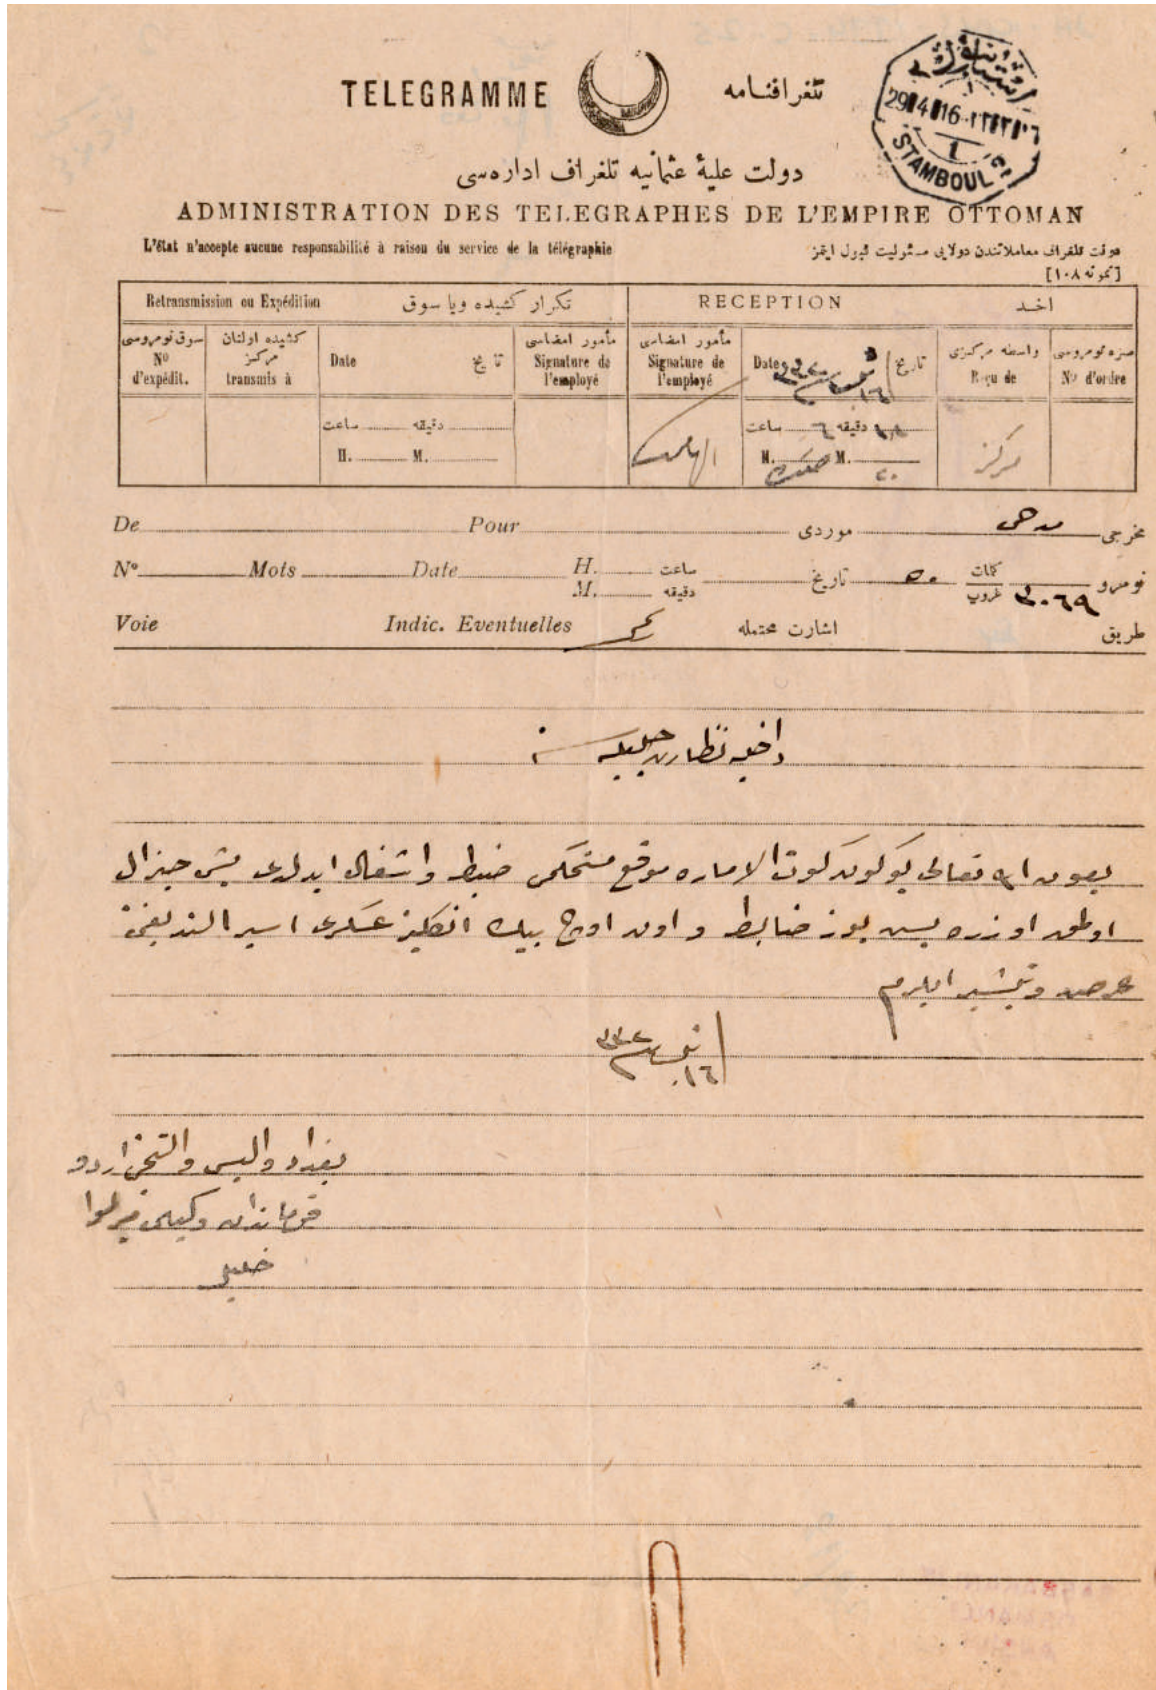 TELEGRAMME تلغرافنامه
29 4 16
STAMBOUL
دولت عليۀ عثمانيه تلغراف اداره‌سى
ADMINISTRATION DES TELEGRAPHES DE L'EMPIRE OTTOMAN
L'état n'accepte aucune responsabilité à raison du service de la télégraphie
دولت تلغراف معاملاتندن دولايى مسئوليت قبول ايتمز
[نمونه ١٠٨]
Retransmission ou Expédition تكرار كشيده ويا سوق RECEPTION اخذ
سوق نومروسى Nº d'expédit.
كشيده اولنان مركز transmis à
Date تاريخ
مأمور امضاسى Signature de l'employé
مأمور امضاسى Signature de l'employé
Date تاريخ ١٦ نيسان ٣٣٢
واسطه مركزى Reçu de
نومروسى Nº d'ordre
ساعت دقيقه
H. M.
ساعت ٦ دقيقه
H. M.
مركز
De Pour موردى مخرجى
Nº Mots Date H. ساعت M. دقيقه تاريخ ٥٠ كلمات غروپ ٣٠٦٩ نومرو
Voie Indic. Eventuelles اشارت محتمله طريق
داخليه نظارت جليله‌سنه
بعون الله تعالى بوگون كوت الاماره موقع مستحكمى ضبط و اشغال ايدلدى بش جنرال
اولمق اوزره بش يوز ضابط و اون اوچ بيك انگليز عسكرى اسير الندیغنى
عرض و تبشير ايلرم
١٦ نيسان ٣٣٢
بغداد واليسى و التنجى اردو
قوماندان وكيلى ميرلوا
خليل